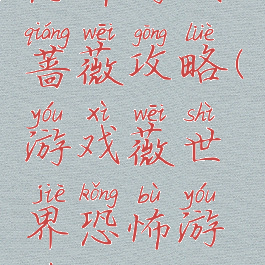 qiáng wēi gōng lüè
蔷薇攻略(
yóu xì wēi shì
游戏薇世
jiè kǒng bù yóu
界恐怖游